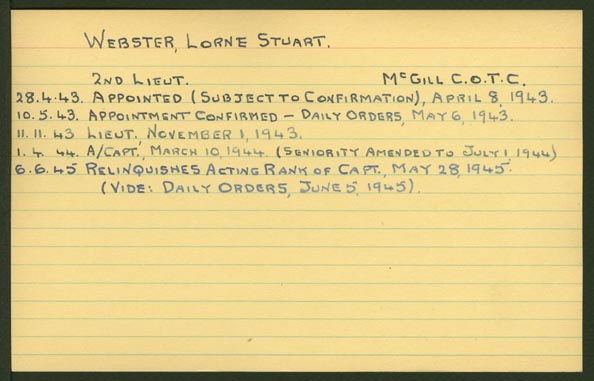 WEBSTER, LORNE STUART.
2ND LIEUT. McGILL C.O.T.C.
28.4.43. APPOINTED (SUBJECT TO CONFIRMATION), APRIL 8, 1943.
10.5.43. APPOINTMENT CONFIRMED – DAILY ORDERS, MAY 6, 1943.
11.11.43 LIEUT. NOVEMBER 1, 1943.
1.4.44. A/CAPT., MARCH 10, 1944. (SENIORITY AMENDED TO JULY 1, 1944)
6.6.45 RELINQUISHES ACTING RANK OF CAPT., MAY 28, 1945.
(VIDE: DAILY ORDERS, JUNE 5, 1945).